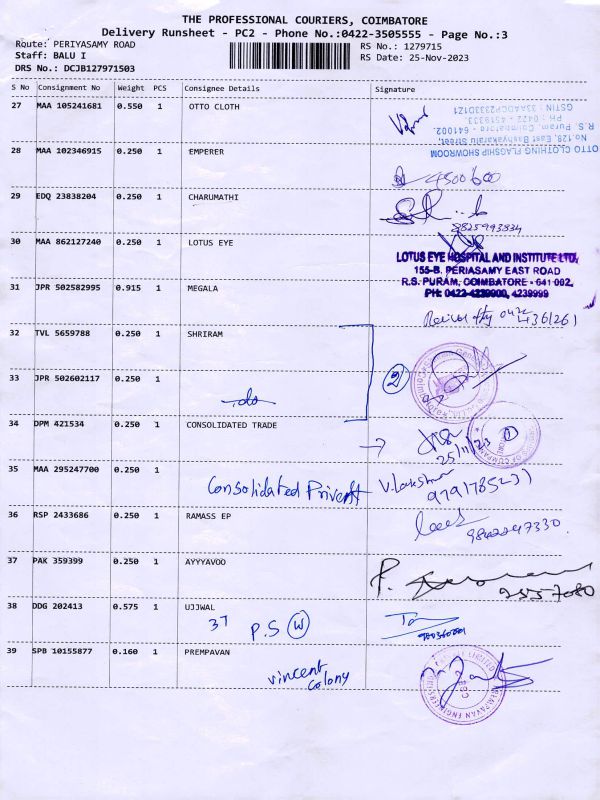 THE PROFESSIONAL COURIERS, COIMBATORE
Delivery Runsheet - PC2 - Phone No.:0422-3505555 - Page No.:3
Route: PERIYASAMY ROAD
RS No.: 1279715
Staff: BALU I
RS Date: 25-Nov-2023
DRS No.: DCJB127971503
S No Consignment No Weight PCS Consignee Details Signature
27 MAA 105241681 0.550 1 OTTO CLOTH
OTTO CLOTHING FLAGSHIP SHOWROOM
No.128, East Bashyakaralu Street,
R. S. Puram, Coimbatore - 641002.
PH : 0422 - 4519333.
GSTIN : 33AADCP2333D1Z1
28 MAA 102346915 0.250 1 EMPERER
4500600
29 EDQ 23838204 0.250 1 CHARUMATHI
9825993834
30 MAA 862127240 0.250 1 LOTUS EYE
LOTUS EYE HOSPITAL AND INSTITUTE LTD.
155-B. PERIASAMY EAST ROAD
R.S. PURAM, COIMBATORE - 641 002.
PH: 0422-4239900, 4239999
31 JPR 502582995 0.915 1 MEGALA
0422
4361261
32 TVL 5659788 0.250 1 SHRIRAM
2
33 JPR 502602117 0.250 1
do
34 DPM 421534 0.250 1 CONSOLIDATED TRADE
→ 25/11/23 1
35 MAA 295247700 0.250 1
Consolidated V. Lakshmi
36 RSP 2433686 0.250 1 RAMASS EP
9842247330
37 PAK 359399 0.250 1 AYYYAVOO
2557080
38 DDG 202413 0.575 1 UJJWAL
37 P.S W
39 SPB 10155877 0.160 1 PREMPAVAN
vincent
colony